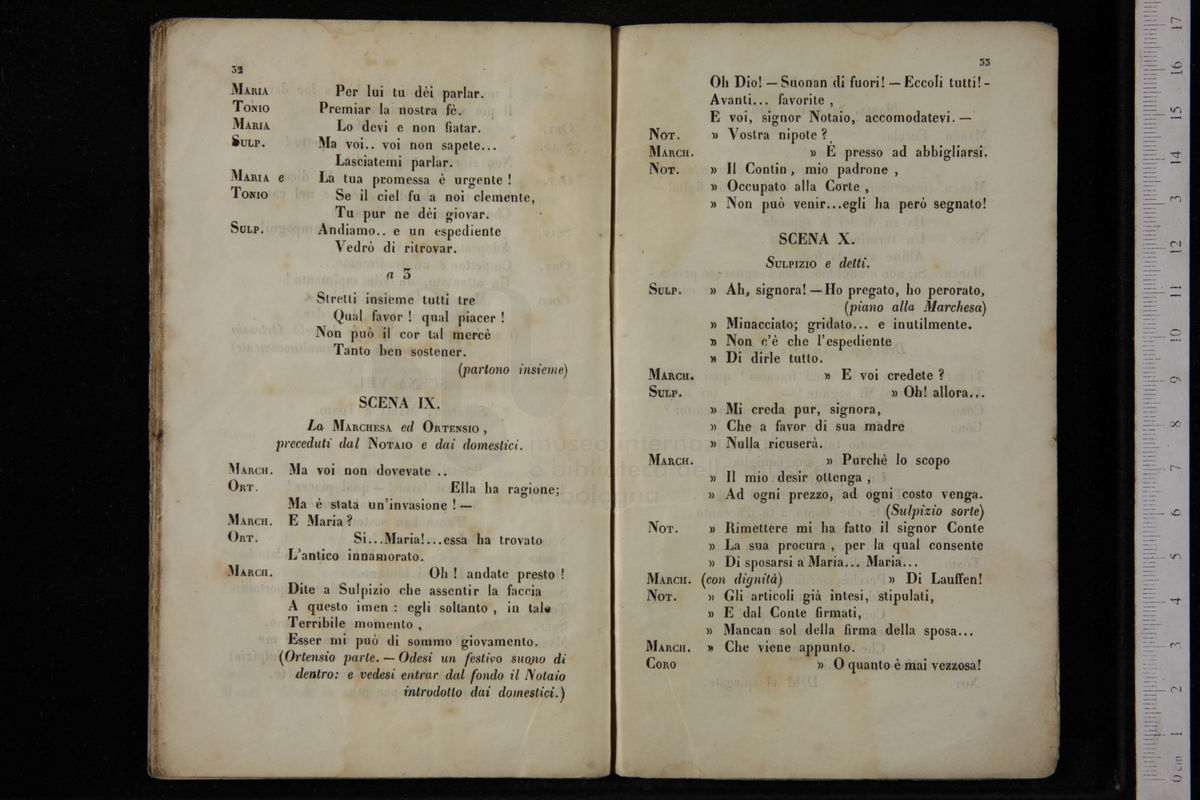 32
MARIA Per lui tu dèi parlar.
TONIO Premiar la nostra fè.
MARIA Lo devi e non fiatar.
SULP. Ma voi.. voi non sapete...
Lasciatemi parlar.
MARIA e La tua promessa è urgente !
TONIO Se il ciel fu a noi clemente,
Tu pur ne dèi giovar.
SULP. Andiamo.. e un espediente
Vedrò di ritrovar.
a 3
Stretti insieme tutti tre
Qual favor ! qual piacer !
Non può il cor tal mercè
Tanto ben sostener.
(partono insieme)
SCENA IX.
La MARCHESA ed ORTENSIO ,
preceduti dal NOTAIO e dai domestici.
MARCH. Ma voi non dovevate ..
ORT. Ella ha ragione;
Ma è stata un'invasione ! —
MARCH. E Maria ?
ORT. Si...Maria!...essa ha trovato
L'antico innamorato.
MARCH. Oh ! andate presto !
Dite a Sulpizio che assentir la faccia
A questo imen : egli soltanto , in tale
Terribile momento ,
Esser mi può di sommo giovamento.
(Ortensio parte. — Odesi un festivo suono di
dentro: e vedesi entrar dal fondo il Notaio
introdotto dai domestici.)
33
Oh Dio! — Suonan di fuori! — Eccoli tutti! -
Avanti... favorite ,
E voi, signor Notaio, accomodatevi. —
NOT. » Vostra nipote ?
MARCH. » È presso ad abbigliarsi.
NOT. » Il Contin , mio padrone ,
» Occupato alla Corte ,
» Non può venir...egli ha però segnato!
SCENA X.
SULPIZIO e detti.
SULP. » Ah, signora! — Ho pregato, ho perorato,
(piano alla Marchesa)
» Minacciato; gridato... e inutilmente.
» Non c'è che l'espediente
» Di dirle tutto.
MARCH. » E voi credete ?
SULP. » Oh! allora...
» Mi creda pur, signora,
» Che a favor di sua madre
» Nulla ricuserà.
MARCH. » Purchè lo scopo
» Il mio desir ottenga ,
» Ad ogni prezzo, ad ogni costo venga.
(Sulpizio sorte)
NOT. » Rimettere mi ha fatto il signor Conte
» La sua procura , per la qual consente
» Di sposarsi a Maria... Maria...
MARCH. (con dignità) » Di Lauffen!
NOT. » Gli articoli già intesi, stipulati,
» E dal Conte firmati,
» Mancan sol della firma della sposa...
MARCH. » Che viene appunto.
CORO » O quanto è mai vezzosa!